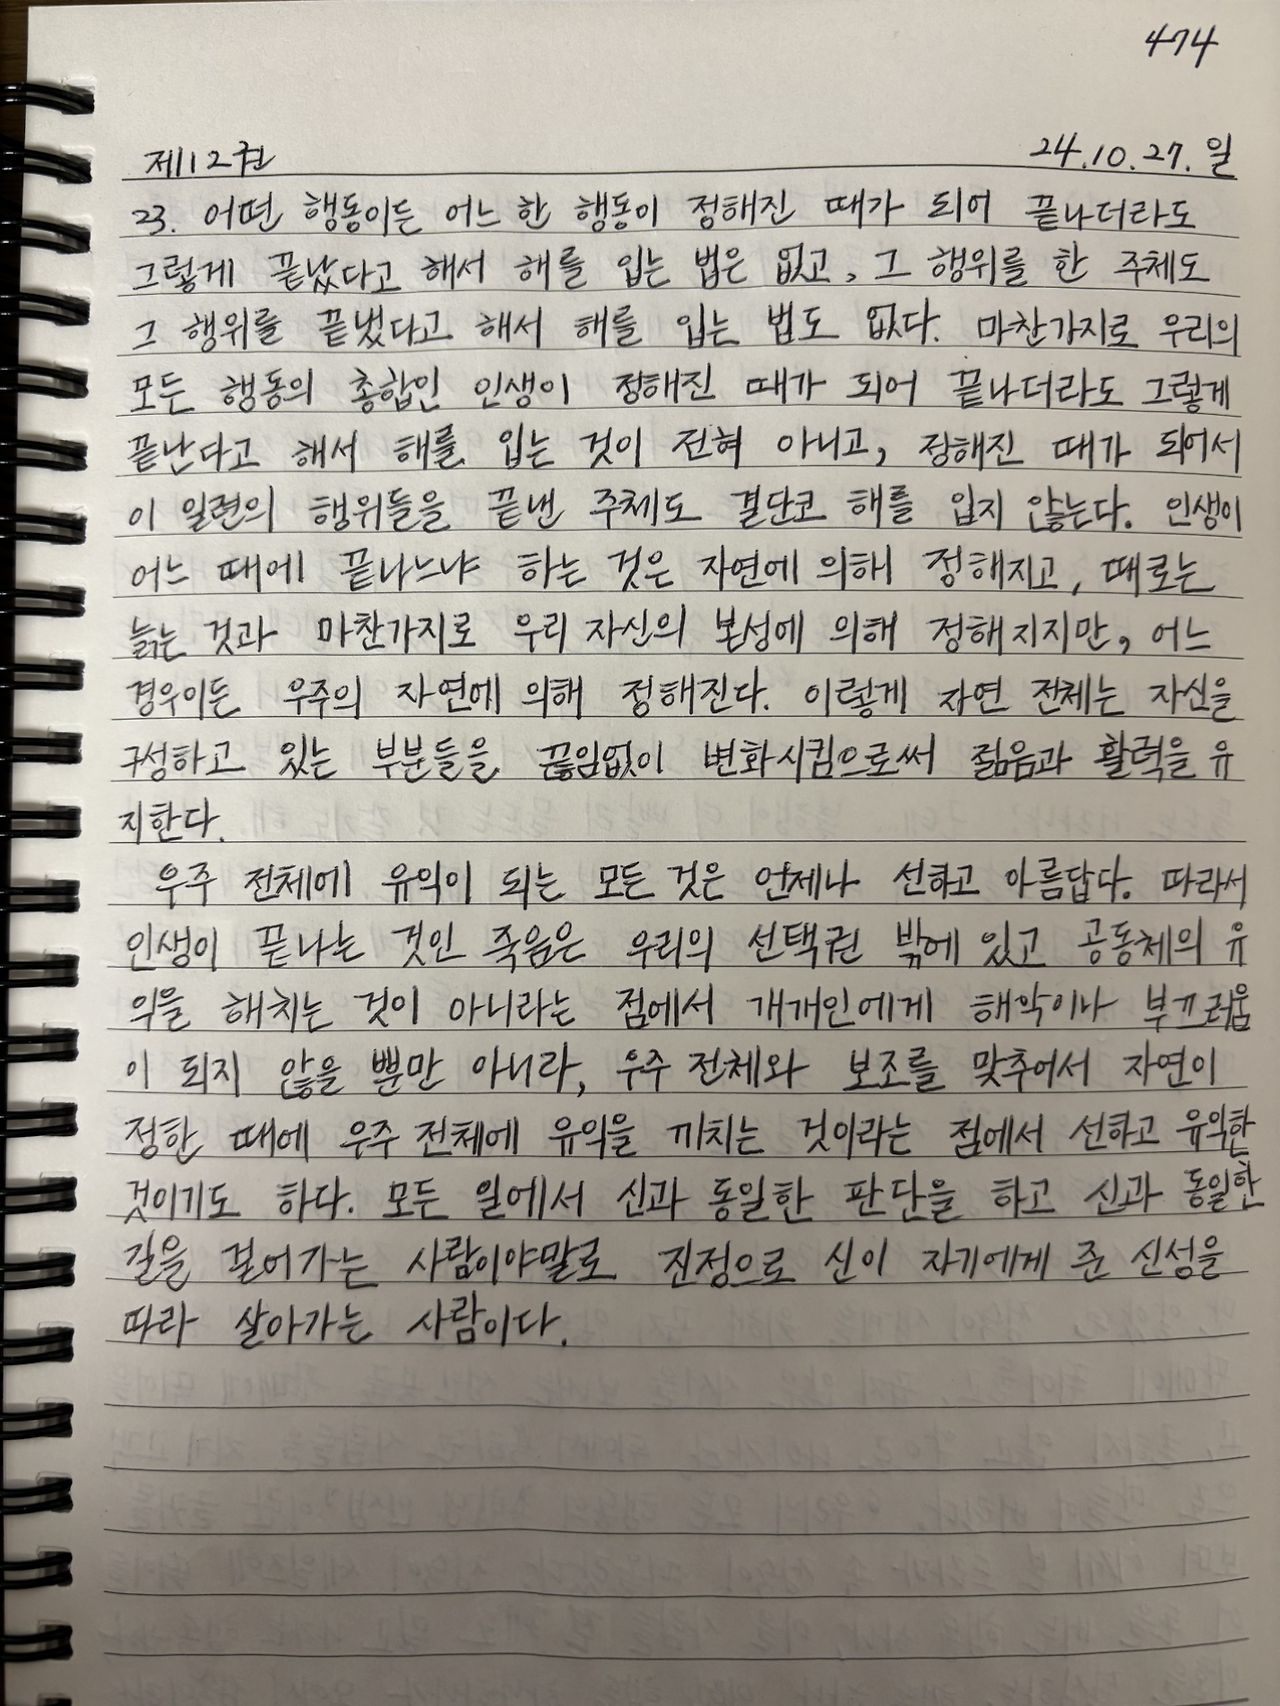 474
제12권 24.10.27.일
23. 어떤 행동이든 어느 한 행동이 정해진 때가 되어 끝나더라도
그렇게 끝났다고 해서 해를 입는 법은 없고, 그 행위를 한 주체도
그 행위를 끝냈다고 해서 해를 입는 법도 없다. 마찬가지로 우리의
모든 행동의 총합인 인생이 정해진 때가 되어 끝나더라도 그렇게
끝난다고 해서 해를 입는 것이 전혀 아니고, 정해진 때가 되어서
이 일련의 행위들을 끝낸 주체도 결단코 해를 입지 않는다. 인생이
어느 때에 끝나느냐 하는 것은 자연에 의해 정해지고, 때로는
늙는 것과 마찬가지로 우리 자신의 본성에 의해 정해지지만, 어느
경우이든 우주의 자연에 의해 정해진다. 이렇게 자연 전체는 자신을
구성하고 있는 부분들을 끊임없이 변화시킴으로써 젊음과 활력을 유
지한다.
우주 전체에 유익이 되는 모든 것은 언제나 선하고 아름답다. 따라서
인생이 끝나는 것인 죽음은 우리의 선택권 밖에 있고 공동체의 유
익을 해치는 것이 아니라는 점에서 개개인에게 해악이나 부끄러움
이 되지 않을 뿐만 아니라, 우주 전체와 보조를 맞추어서 자연이
정한 때에 우주 전체에 유익을 끼치는 것이라는 점에서 선하고 유익한
것이기도 하다. 모든 일에서 신과 동일한 판단을 하고 신과 동일한
길을 걸어가는 사람이야말로 진정으로 신이 자기에게 준 신성을
따라 살아가는 사람이다.